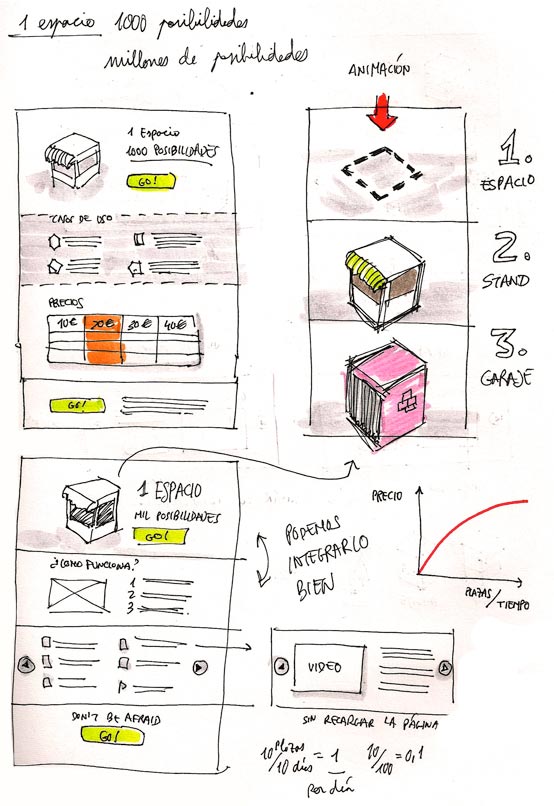 1 espacio 1000 posibilidades
millones de posibilidades
ANIMACIÓN
1 Espacio
1000 POSIBILIDADES
GO!
CASOS DE USO
PRECIOS
10€ 20€ 30€ 40€
GO!
1.
ESPACIO
2.
STAND
3.
GARAJE
1 ESPACIO
MIL POSIBILIDADES
GO!
¿COMO FUNCIONA?
1
2
3
PODEMOS
INTEGRARLO
BIEN
PRECIO
PLAZAS/
TIEMPO
VIDEO
SIN RECARGAR LA PÁGINA
DON'T BE AFRAID
GO!
10 plazas/10 días = 1 por día
10/100 = 0,1